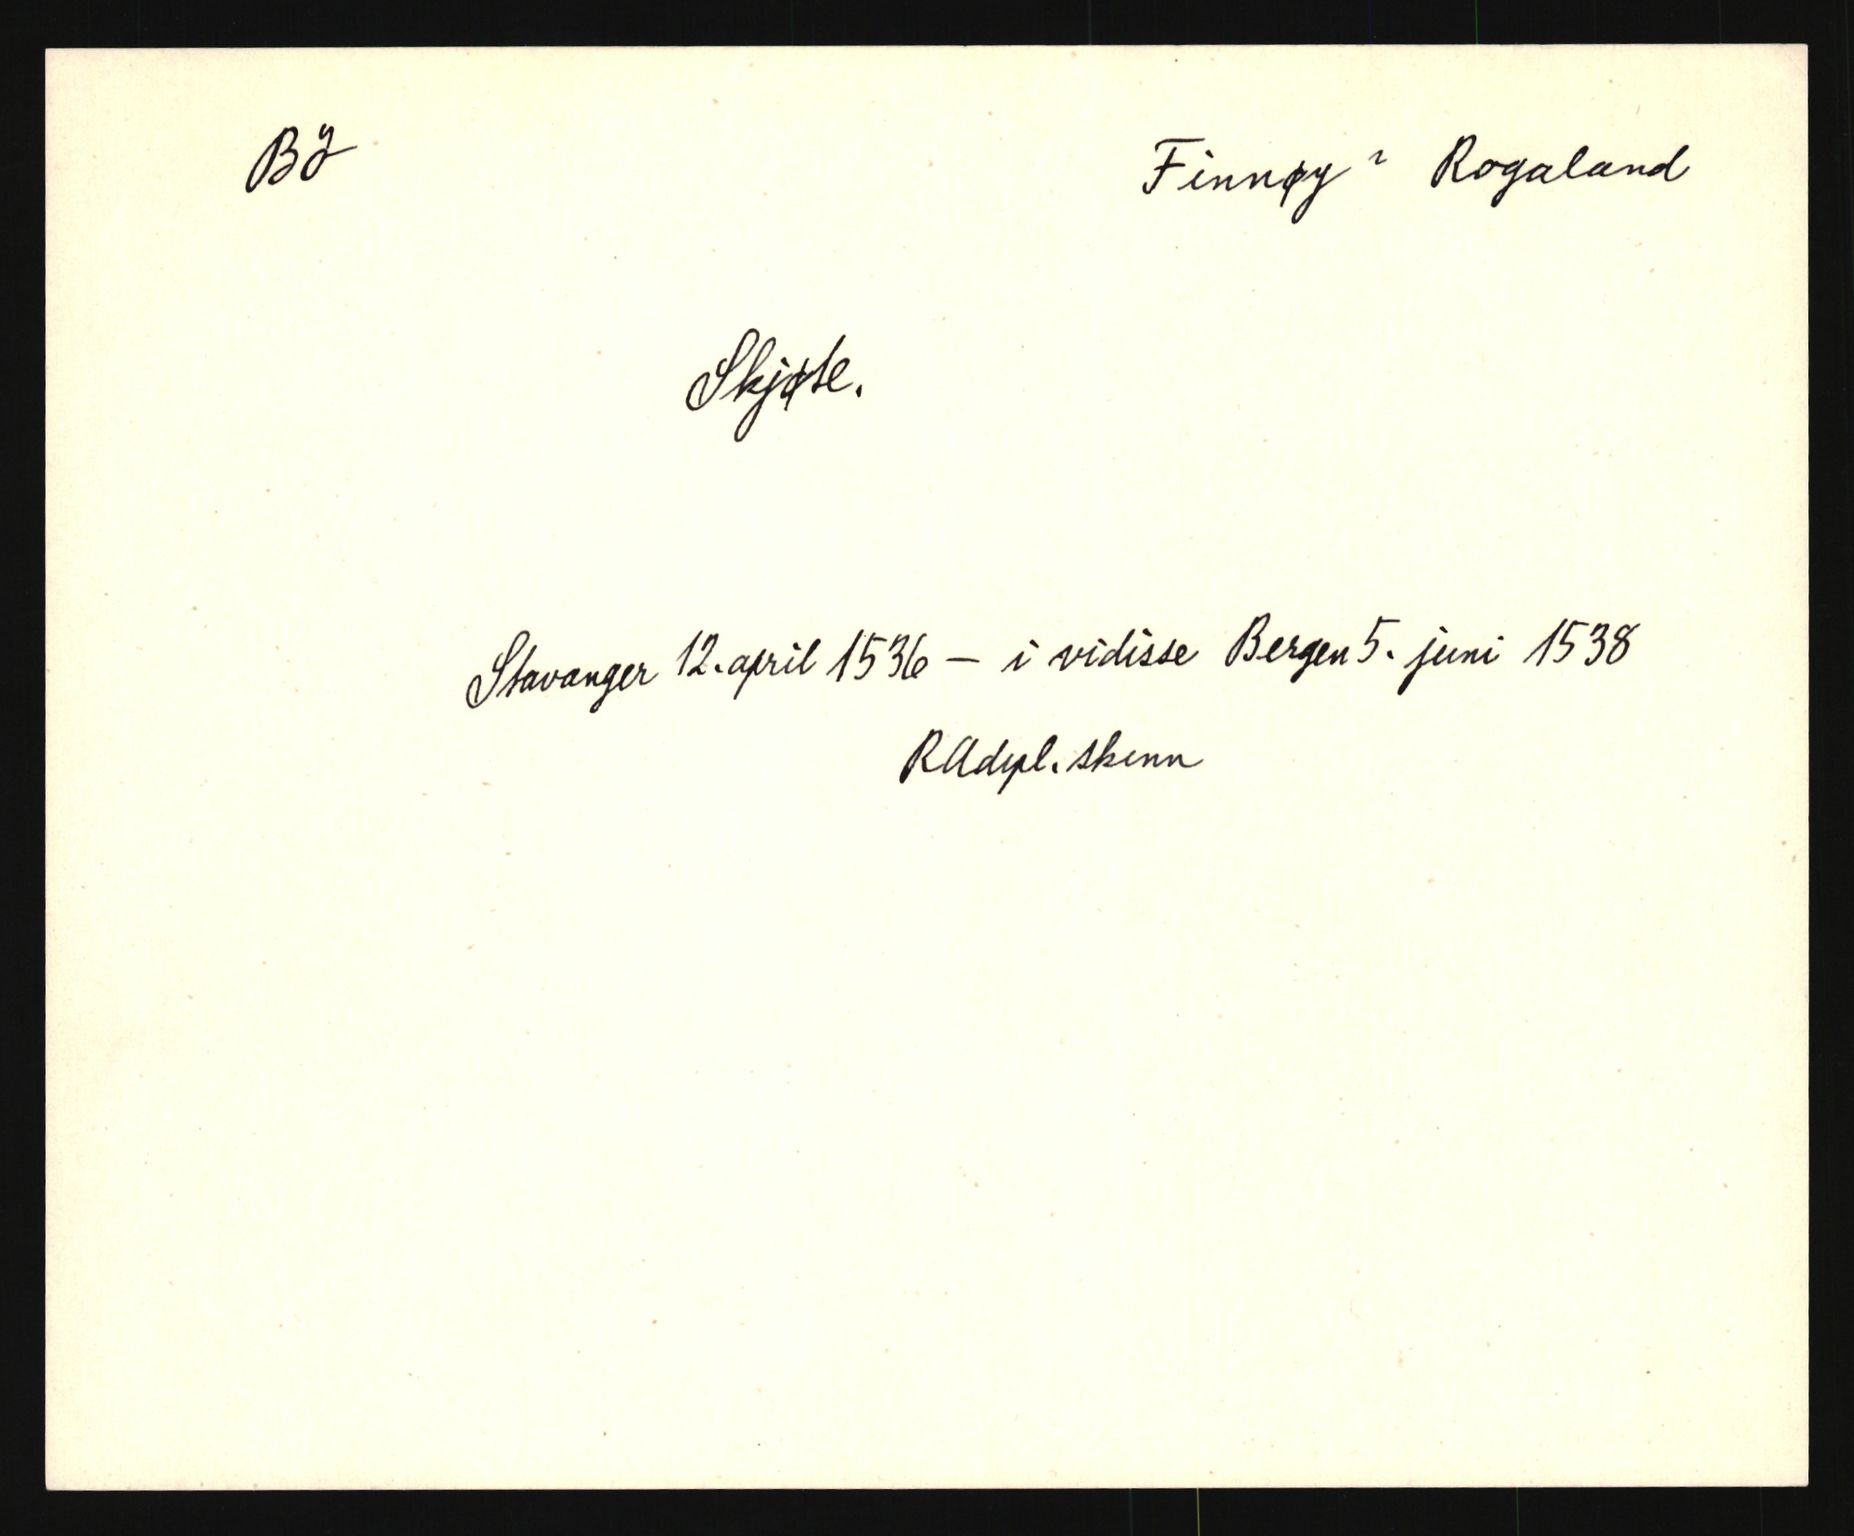 Bø Finnøy i Rogaland
Skjøte.
Stavanger 12. april 1536 – i vidisse Bergen 5. juni 1538
RA dipl. skinn